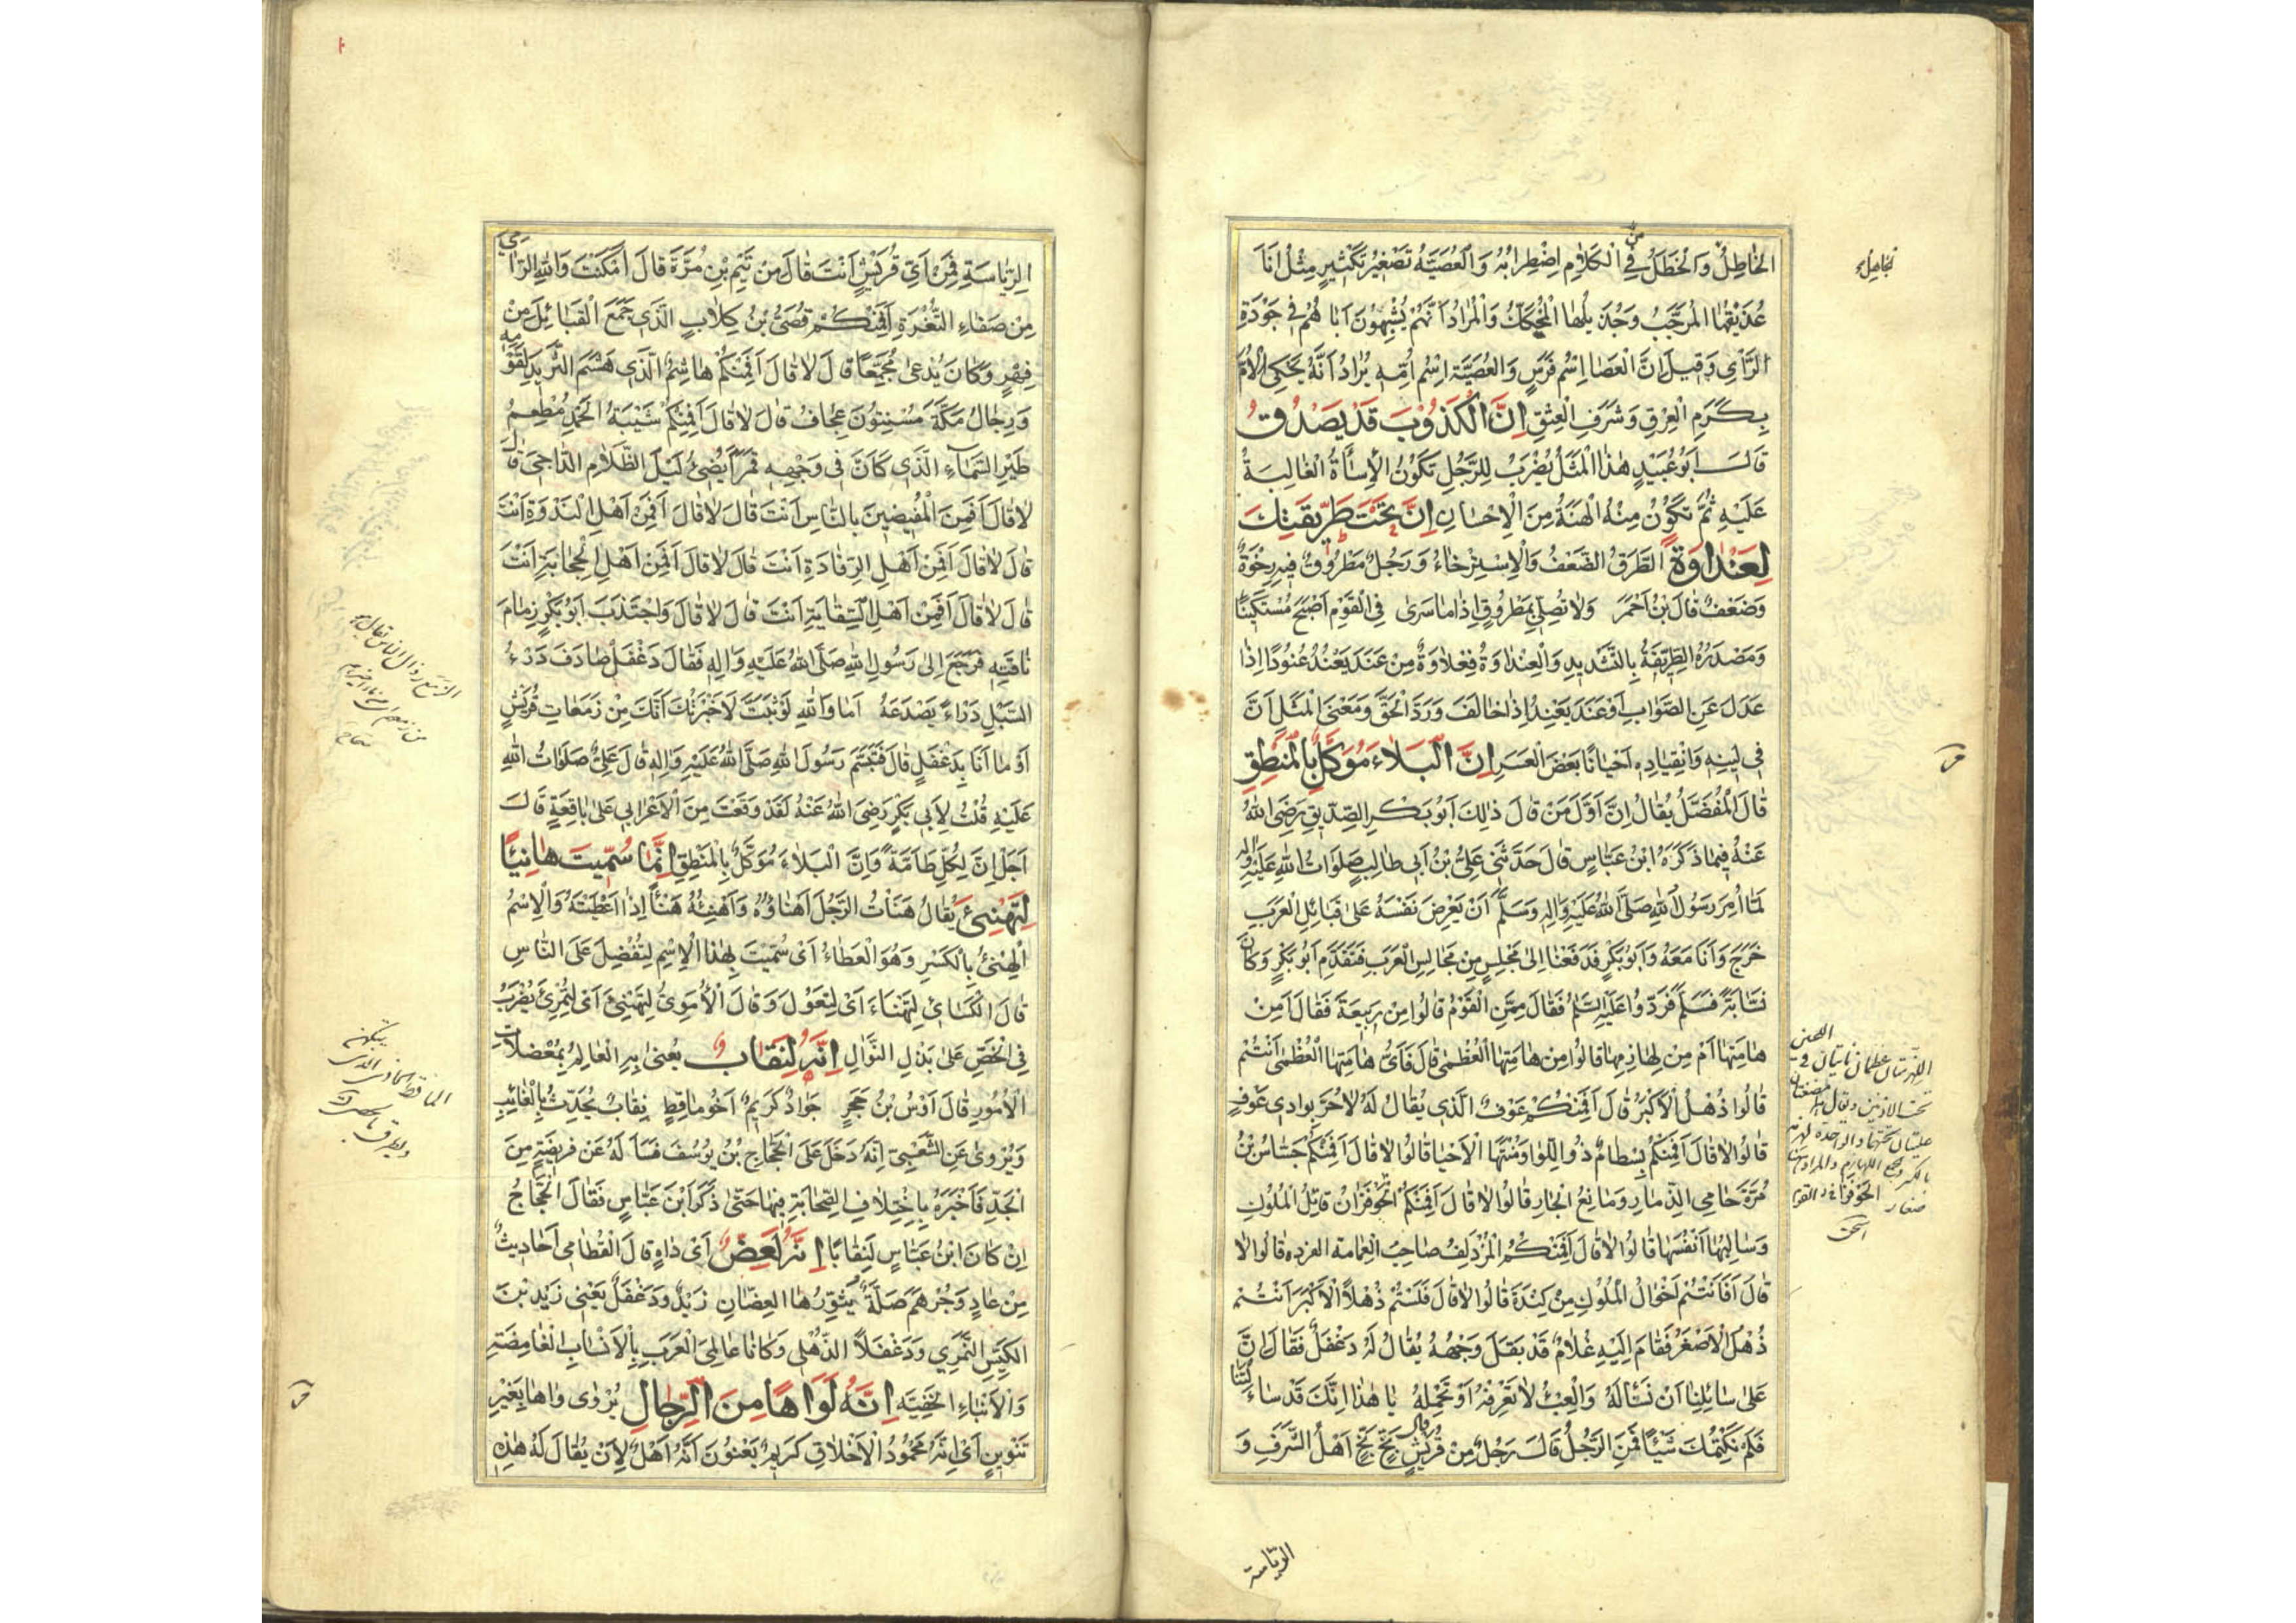 الخَاطِلُ وَالْخَطَلُ فِي الْكَلَامِ اِضْطِرَابُهُ وَالْعُصَيَّةُ تَصْغِيرُ تَكْثِيرٍ مِثْلُ اَنَا
عُذَيْقُهَا الْمُرَجَّبُ وَجُذَيْلُهَا الْمُحَكَّكُ وَالْمُرَادُ اَنَّهُمْ يُشْبِهُونَ اَبَاهُمْ فِي جَوْدَةِ
الرَّأْيِ وَقِيلَ اِنَّ الْعَصَا اِسْمُ فَرَسٍ وَالْعُصَيَّةَ اِسْمُ اُمِّهِ يُرَادُ اَنَّهُ يَحْكِي الْاُمَّ
بِكَرَمِ الْعِرْقِ وَشَرَفِ الْعِتْقِ اِنَّ الْكَذُوْبَ قَدْ يَصْدُقُ
قَالَ اَبُو عُبَيْدٍ هٰذَا الْمَثَلُ يُضْرَبُ لِلرَّجُلِ تَكُوْنُ الْاِسَاءَةُ الْغَالِبَةَ
عَلَيْهِ ثُمَّ تَكُوْنُ مِنْهُ الْهَنَةُ مِنَ الْاِحْسَانِ اِنَّ تَحْتَ طَرِّيْقَتِكَ
لَعِنْدَاْوَةً الطَّرَقُ الضَّعْفُ وَالْاِسْتِرْخَاءُ وَرَجُلٌ مَطْرُوْقٌ فِيهِ رِخْوَةٌ
وَضَعْفٌ قَالَ بْنُ اَحْمَرَ وَلَا تَصِلِي بِمَطْرُوقٍ اِذَا مَا سَرٰى فِي الْقَوْمِ اَصْبَحَ مُسْتَكِينًا
وَمَصْدَرُهُ الطِّرِّيقَةُ بِالتَّشْدِيدِ وَالْعِنْدَاوَةُ فِعْلَاوَةٌ مِنْ عَنَدَ يَعْنُدُ عُنُودًا اِذَا
عَدَلَ عَنِ الصَّوَابِ اَوْ عَنَدَ يَعْنِدُ اِذَا خَالَفَ وَرَدَّ الْحَقَّ وَمَعْنَى الْمَثَلِ اَنَّ
فِي لِينِهِ وَانْقِيَادِهِ اَحْيَانًا بَعْضَ الْعُسْرِ اِنَّ الْبَلَاءَ مُوَكَّلٌ بِالْمَنْطِقِ
قَالَ الْمُفَضَّلُ يُقَالُ اِنَّ اَوَّلَ مَنْ قَالَ ذٰلِكَ اَبُو بَكْرٍ الصِّدِّيقِ رَضِيَ اللهُ
عَنْهُ فِيمَا ذَكَرَهُ ابْنُ عَبَّاسٍ قَالَ حَدَّثَنِي عَلِيُّ بْنُ اَبِي طَالِبٍ صَلَوَاتُ اللهِ عَلَيْهِ وَاٰلِهِ
لَمَّا اُمِرَ رَسُولُ اللهِ صَلَّى اللهُ عَلَيْهِ وَاٰلِهِ وَسَلَّمَ اَنْ يَعْرِضَ نَفْسَهُ عَلَى قَبَائِلِ الْعَرَبِ
خَرَجَ وَاَنَا مَعَهُ وَاَبُو بَكْرٍ فَدَفَعْنَا اِلَى مَجْلِسٍ مِنْ مَجَالِسِ الْعَرَبِ فَتَقَدَّمَ اَبُو بَكْرٍ وَكَانَ
نَسَّابَةً فَسَلَّمَ فَرَدُّوا عَلَيْهِ السَّلَامَ فَقَالَ مِمَّنِ الْقَوْمُ قَالُوا مِنْ رَبِيعَةَ فَقَالَ اَمِنْ
هَامَتِهَا اَمْ مِنْ لَهَازِمِهَا قَالُوا مِنْ هَامَتِهَا الْعُظْمٰى قَالَ فَاَيُّ هَامَتِهَا الْعُظْمٰى اَنْتُمْ
قَالُوا ذُهْلُ الْاَكْبَرُ قَالَ اَفَمِنْكُمْ عَوْفٌ الَّذِي يُقَالُ لَهُ لَا حُرَّ بِوَادِي عَوْفٍ
قَالُوا لَا قَالَ اَفَمِنْكُمْ بِسْطَامٌ ذُو اللِّوَا وَمُنْتَهَا الْاَحْيَا قَالُوا لَا قَالَ اَفَمِنْكُمْ جَسَّاسُ بْنُ
مُرَّةَ حَامِي الذِّمَارِ وَمَانِعُ الْجَارِ قَالُوا لَا قَالَ اَفَمِنْكُمْ الْحَوْفَزَانُ قَاتِلُ الْمُلُوكِ
وَسَالِبُهَا اَنْفُسَهَا قَالُوا لَا قَالَ اَفَمِنْكُمُ الْمُزْدَلِفُ صَاحِبُ الْعِمَامَةِ الفرده قَالُوا لَا
قَالَ اَفَاَنْتُمْ اَخْوَالُ الْمُلُوكِ مِنْ كِنْدَةَ قَالُوا لَا قَالَ فَلَسْتُمْ ذُهْلًا الْاَكْبَرَ اَنْتُمْ
ذُهْلُ الْاَصْغَرُ فَقَامَ اِلَيْهِ غُلَامٌ قَدْ بَقَلَ وَجْهُهُ يُقَالُ لَهُ دَغْفَلٌ فَقَالَ اِنَّ
عَلَى سَائِلِنَا اَنْ نَسْأَلَهُ وَالْعِبْءُ لَا نَعْرِفُهُ اَوْ نَحْمِلُهُ يَا هٰذَا اِنَّكَ قَدْ سَاَلْتَنَا
فَلَمْ نَكْتُمْكَ شَيْئًا فَمَنِ الرَّجُلُ قَالَ رَجُلٌ مِنْ قُرَيْشٍ قَالَ بَخٍّ بَخٍّ اَهْلُ الشَّرَفِ وَ
الرياسة
الرِّيَاسَةِ فَمِنْ اَيِّ قُرَيْشٍ اَنْتَ قَالَ مِنْ تَيْمِ بْنِ مُرَّةَ قَالَ اَمْكَنْتَ وَاللهِ الرَّامِيَ
مِنْ صَفَاءِ الثُّغْرَةِ اَفَمِنْكُمْ قُصَيُّ بْنُ كِلَابٍ الَّذِي جَمَعَ الْقَبَائِلَ مِنْ
فِهْرٍ وَكَانَ يُدْعٰى مُجَمِّعًا قَالَ لَا قَالَ اَفَمِنْكُمْ هَاشِمٌ الَّذِي هَشَمَ الثَّرِيدَ لِقَوْمِهِ
وَرِجَالُ مَكَّةَ مُسْنِتُونَ عِجَافٌ قَالَ لَا قَالَ اَفَمِنْكُمْ شَيْبَةُ الْحَمْدِ مُطْعِمُ
طَيْرِ السَّمَاءِ الَّذِي كَاَنَّ فِي وَجْهِهِ قَمَرًا يُضِيءُ لَيْلَ الظَّلَامِ الدَّاجِي قَالَ
لَا قَالَ اَفَمِنَ الْمُفِيضِينَ بِالنَّاسِ اَنْتَ قَالَ لَا قَالَ اَفَمِنْ اَهْلِ النَّدْوَةِ اَنْتَ
قَالَ لَا قَالَ اَفَمِنْ اَهْلِ الرِّفَادَةِ اَنْتَ قَالَ لَا قَالَ اَفَمِنْ اَهْلِ الْحِجَابَةِ اَنْتَ
قَالَ لَا قَالَ اَفَمِنْ اَهْلِ السِّقَايَةِ اَنْتَ قَالَ لَا قَالَ وَاجْتَذَبَ اَبُو بَكْرٍ زِمَامَ
نَاقَتِهِ فَرَجَعَ اِلَى رَسُولِ اللهِ صَلَّى اللهُ عَلَيْهِ وَاٰلِهِ فَقَالَ دَغْفَلٌ صَادَفَ دَرْءُ
السَّيْلِ دَرْاءً يَصْدَعُهُ اَمَا وَاللهِ لَوْ ثَبَتَّ لَاَخْبَرْتُكَ اَنَّكَ مِنْ زَمَعَاتِ قُرَيْشٍ
اَوْ مَا اَنَا بِدَغْفَلٍ قَالَ فَتَبَسَّمَ رَسُولَ اللهِ صَلَّى اللهُ عَلَيْهِ وَاٰلِهِ قَالَ عَلِيٌّ صَلَوَاتُ اللهِ
عَلَيْهِ قُلْتُ لِاَبِي بَكْرٍ رَضِيَ اللهُ عَنْهُ لَقَدْ وَقَعْتَ مِنَ الْاَعْرَابِي عَلَى بَاقِعَةٍ قَالَ
اَجَلْ اِنَّ لِكُلِّ طَامَّةٍ وَاِنَّ الْبَلَاءَ مُوَكَّلٌ بِالْمَنْطِقِ اِنَّمَا سُمِّيتَ هَانِيًا
لِتَهْنِئَ يُقَالُ هَنَاْتُ الرَّجُلَ اَهْنَاؤُهُ وَاَهْنِئُهُ هَنْأً اِذَا اَعْطَيْتَهُ وَالْاِسْمُ
الْهِنْئُ بِالْكَسْرِ وَهُوَ الْعَطَاءُ اَيْ سُمِّيتَ بِهٰذَا الْاِسْمِ لِتُفْضِلَ عَلَى النَّاسِ
قَالَ الْكِسَائِي لِتَهْنَاءَ اَيْ لِتَعُوْلَ وَقَالَ الْاُمَوِيُّ لِتَهْنِئَ اَيْ لِتُمْرِئَ يُضْرَبُ
فِي الْحَضِّ عَلَى بَذْلِ النَّوَالِ اِنَّهُ لَنِقَابٌ يُعْنٰى بِهِ الْعَالِمُ بِمُعْضِلَاتِ
الْاُمُورِ قَالَ اَوْسُ بْنُ حَجَرٍ جَوَادٌ كَرِيمٌ اَخُو مَاقِطٍ نِقَابٌ يُحَدِّثُ بِالْغَائِبِ
وَيُرْوٰى عَنِ الشَّعْبِيِّ اِنَّهُ دَخَلَ عَلَى الْحَجَّاجِ بْنُ يُوسُفَ فَسَأَلَهُ عَنْ فَرِيضَةٍ مِنَ
الْجَدِّ فَاَخْبَرَهُ بِاخْتِلَافِ الصَّحَابَةِ فِيهَا حَتّٰى ذَكَرَ ابْنَ عَبَّاسٍ فَقَالَ الْحَجَّاجُ
اِنْ كَانَ ابْنُ عَبَّاسٍ لَنِقَابًا اِنَّهُ لَعِضٌّ اَيْ دَاهٍ قَالَ الْقُطَامِي اَحَادِيثُ
مِنْ عَادٍ وَجُرْهُمَ ضَلَّةً يُثَوِّرُهَا الْعِضَّانِ زَيْدٌ وَدَغْفَلٌ يَعْنِي زَيْدَ بْنَ
الْكَيِّسِ النَّمَرِي وَدَغْفَلًا الذُّهْلِي وَكَانَا عَالِمَيِ الْعَرَبِ بِالْاَنْسَابِ الْغَامِضَةِ
وَالْاَنْبَاءِ الْخَفِيَّةِ اِنَّهُ لَوَاهًا مِنَ الرِّجَالِ يُرْوٰى وَاهَا بِغَيْرِ
تَنْوِينٍ اَيْ اِنَّهُ مَحْمُودُ الْاَخْلَاقِ كَرِيمٌ يَعْنُونَ اَنَّهُ اَهْلٌ لِاَنْ يُقَالَ لَهُ هٰذِهِ